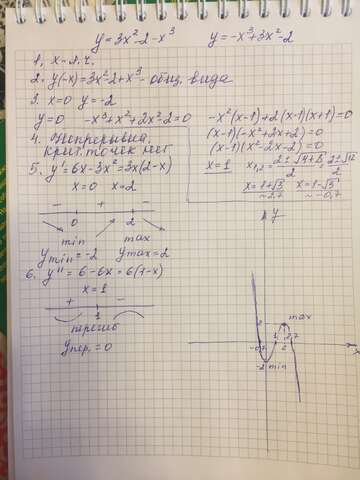 y=3x²-2-x³    y=-x³+3x²-2
1. x-л.ч.
2. y(-x)=3x²-2+x³- общ. вида
3. x=0  y=-2
y=0  -x³+x²+2x²-2=0
-x²(x-1)+2(x-1)(x+1)=0
(x-1)(-x²+2x+2)=0
(x-1)(x²-2x-2)=0
x=1  x₁,₂=(2±√4+8)/2=(2±√12)/2
x=1+√3  x=1-√3
~2,7  ~-0,7
4. Непрерывна,
Крит. точек нет
5. y'=6x-3x²=3x(2-x)
x=0  x=2
-  +  -
0  2
min  max
y min=-2  y max=2
6. y"=6-6x=6(1-x)
x=1
+  -
1
перегиб
y пер.=0
y
2
max
-0,7  1  2  2,7  x
-2  min